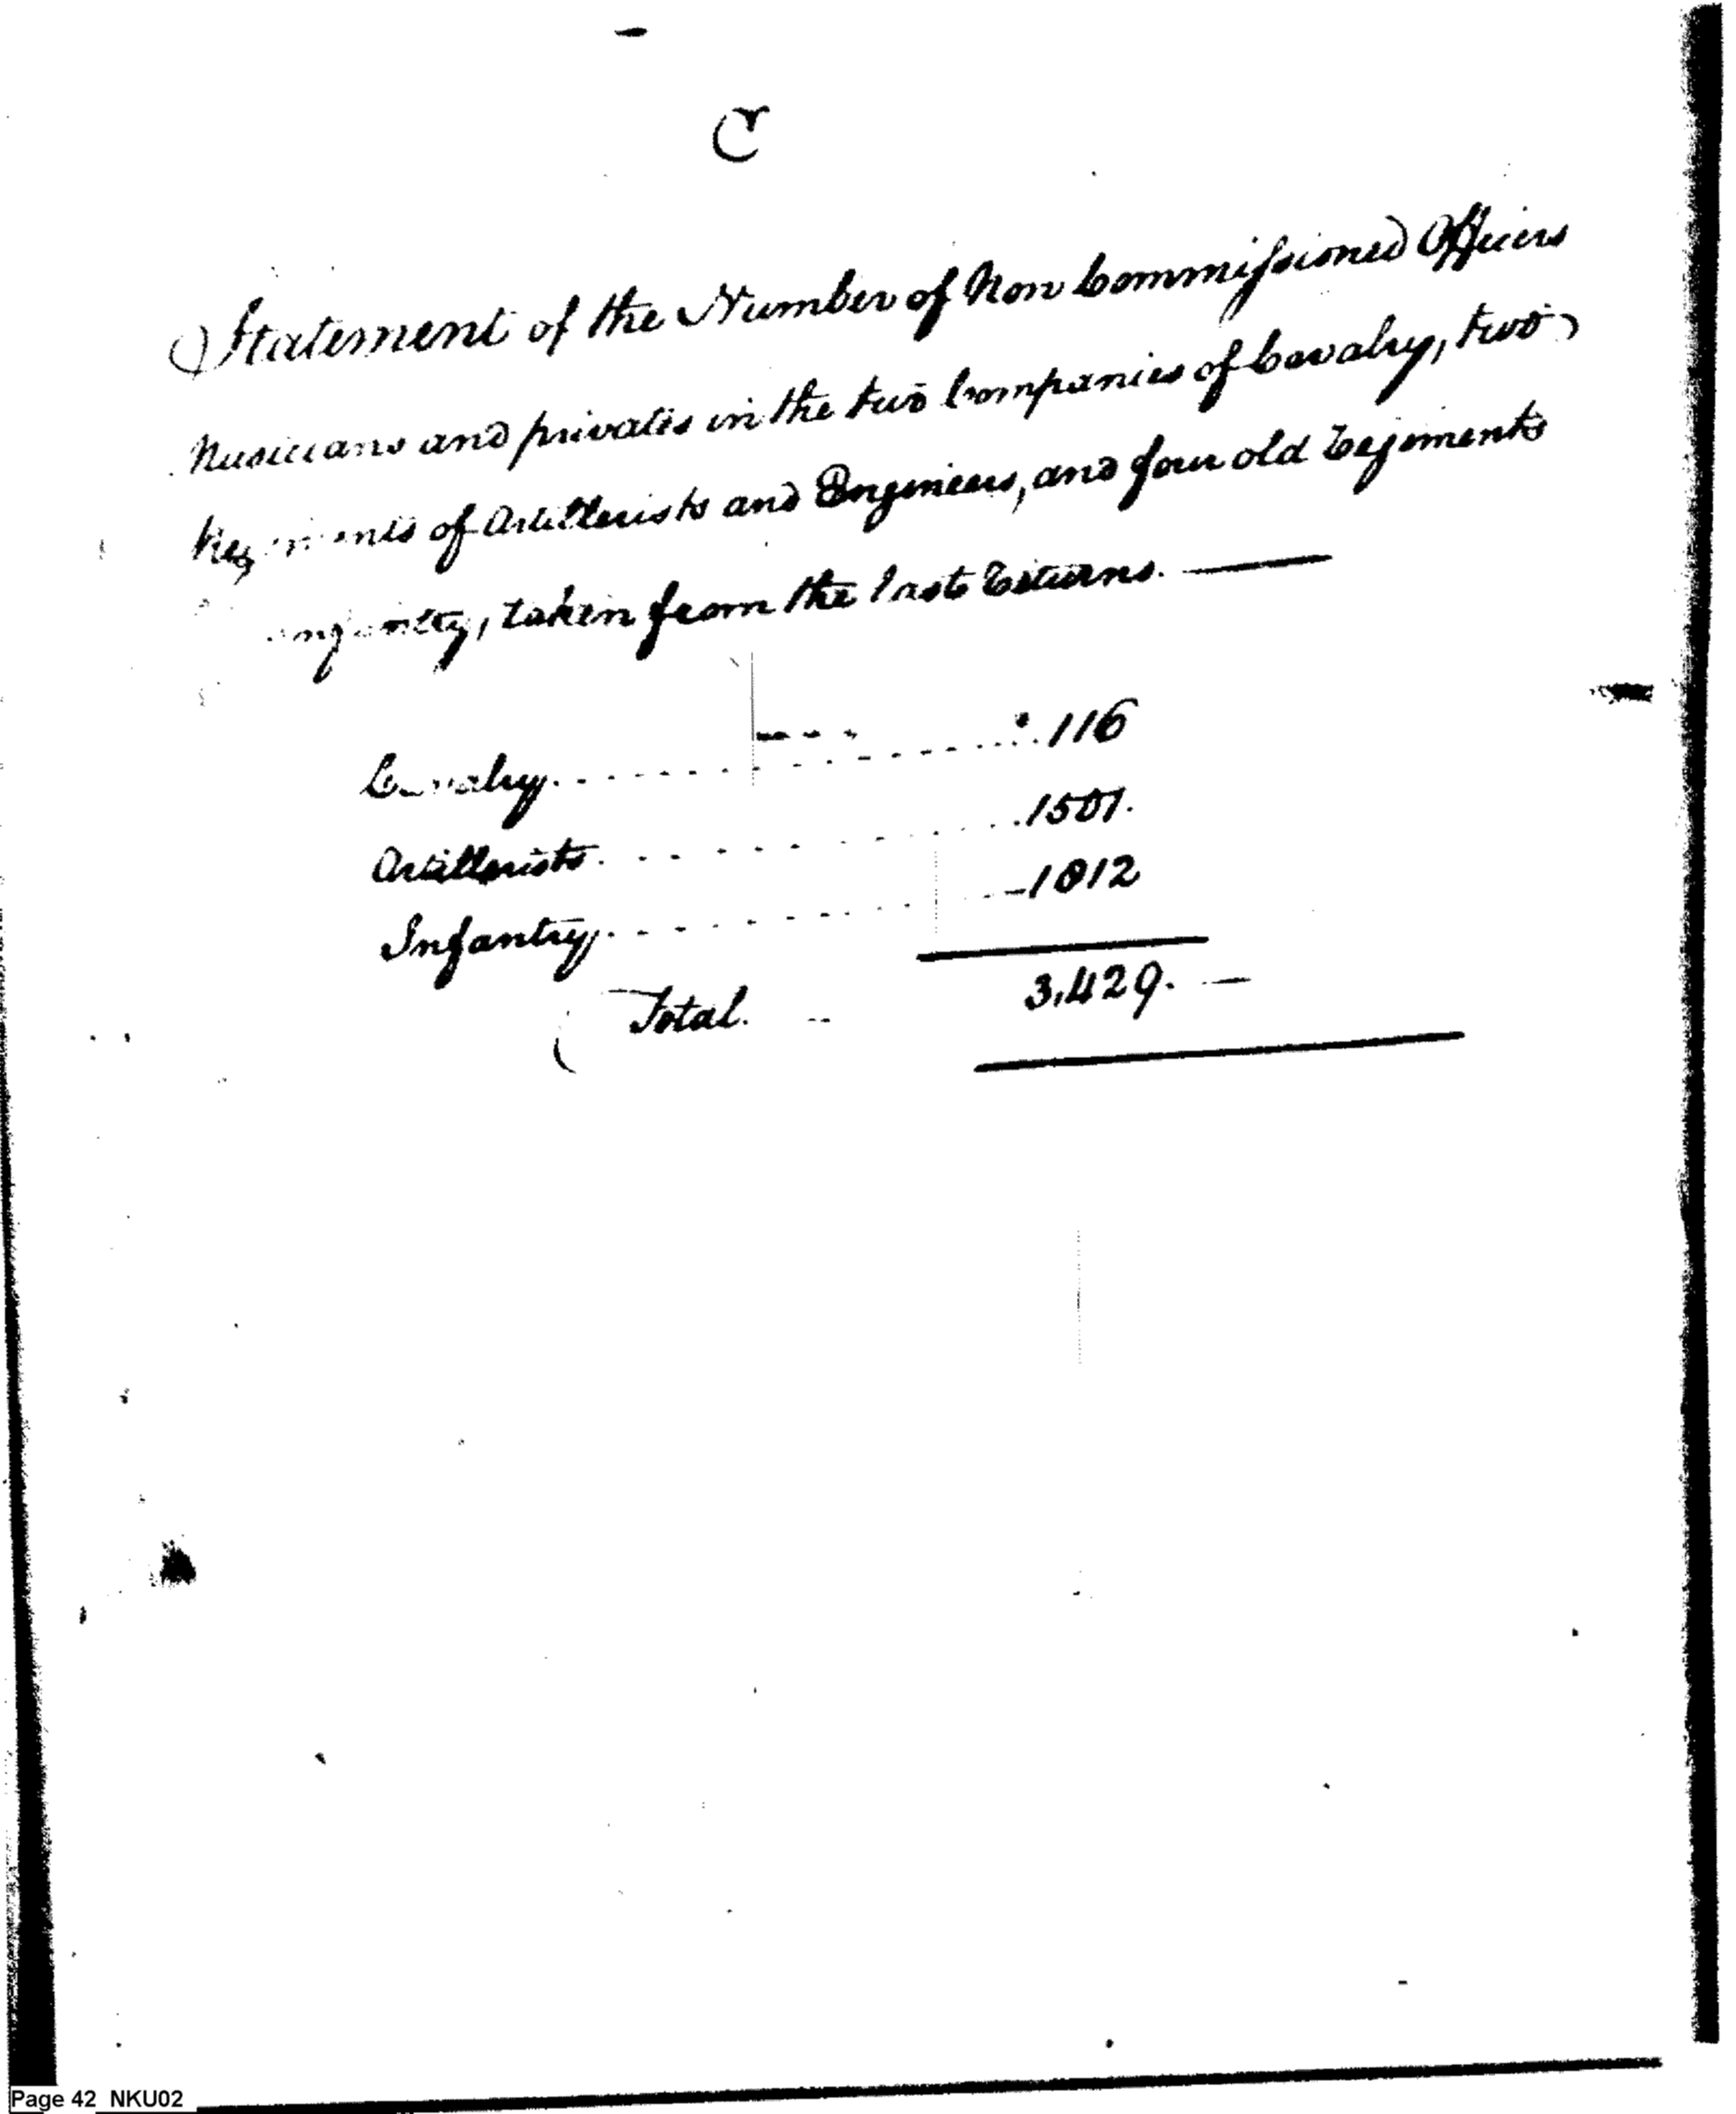 C
Statement of the Number of Non Commissioned Officers
Musicians and privates in the two Companies of Cavalry, two
Regiments of Artillerists and Engineers, and four old Regiments
infantry, taken from the last Returns.
Cavalry 116
Artillerists 1501.
Infantry 1812
Total. 3,429.
Page 42 NKU02